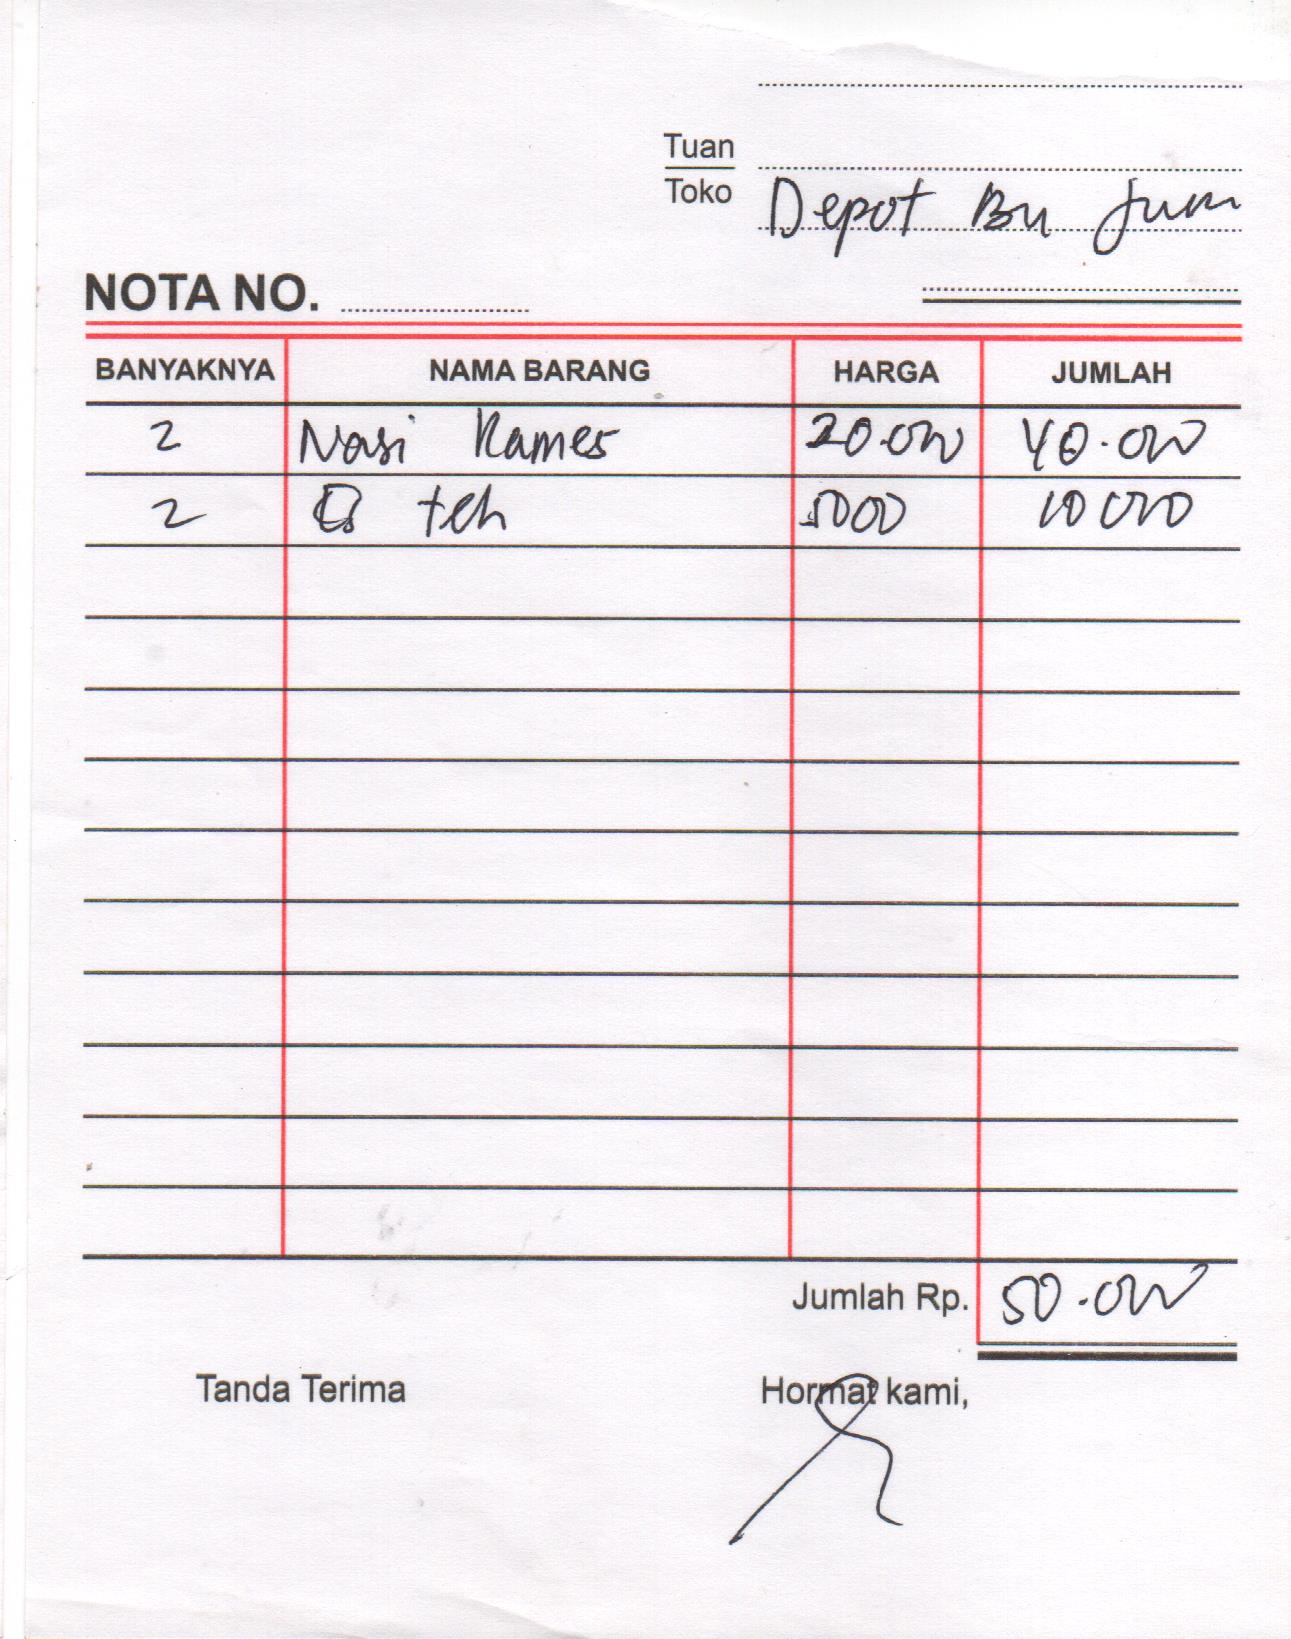 Tuan
Toko Depot Bu Jum
NOTA NO.
BANYAKNYA NAMA BARANG HARGA JUMLAH
2 Nasi Rames 20.000 40.000
2 Es teh 5000 10000
Jumlah Rp. 50.000
Tanda Terima Hormat kami,